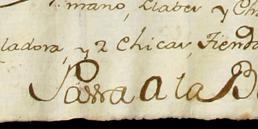 mano, Llaber y Ch
ladora, y 2 Chicas, Tienda
Para a la B